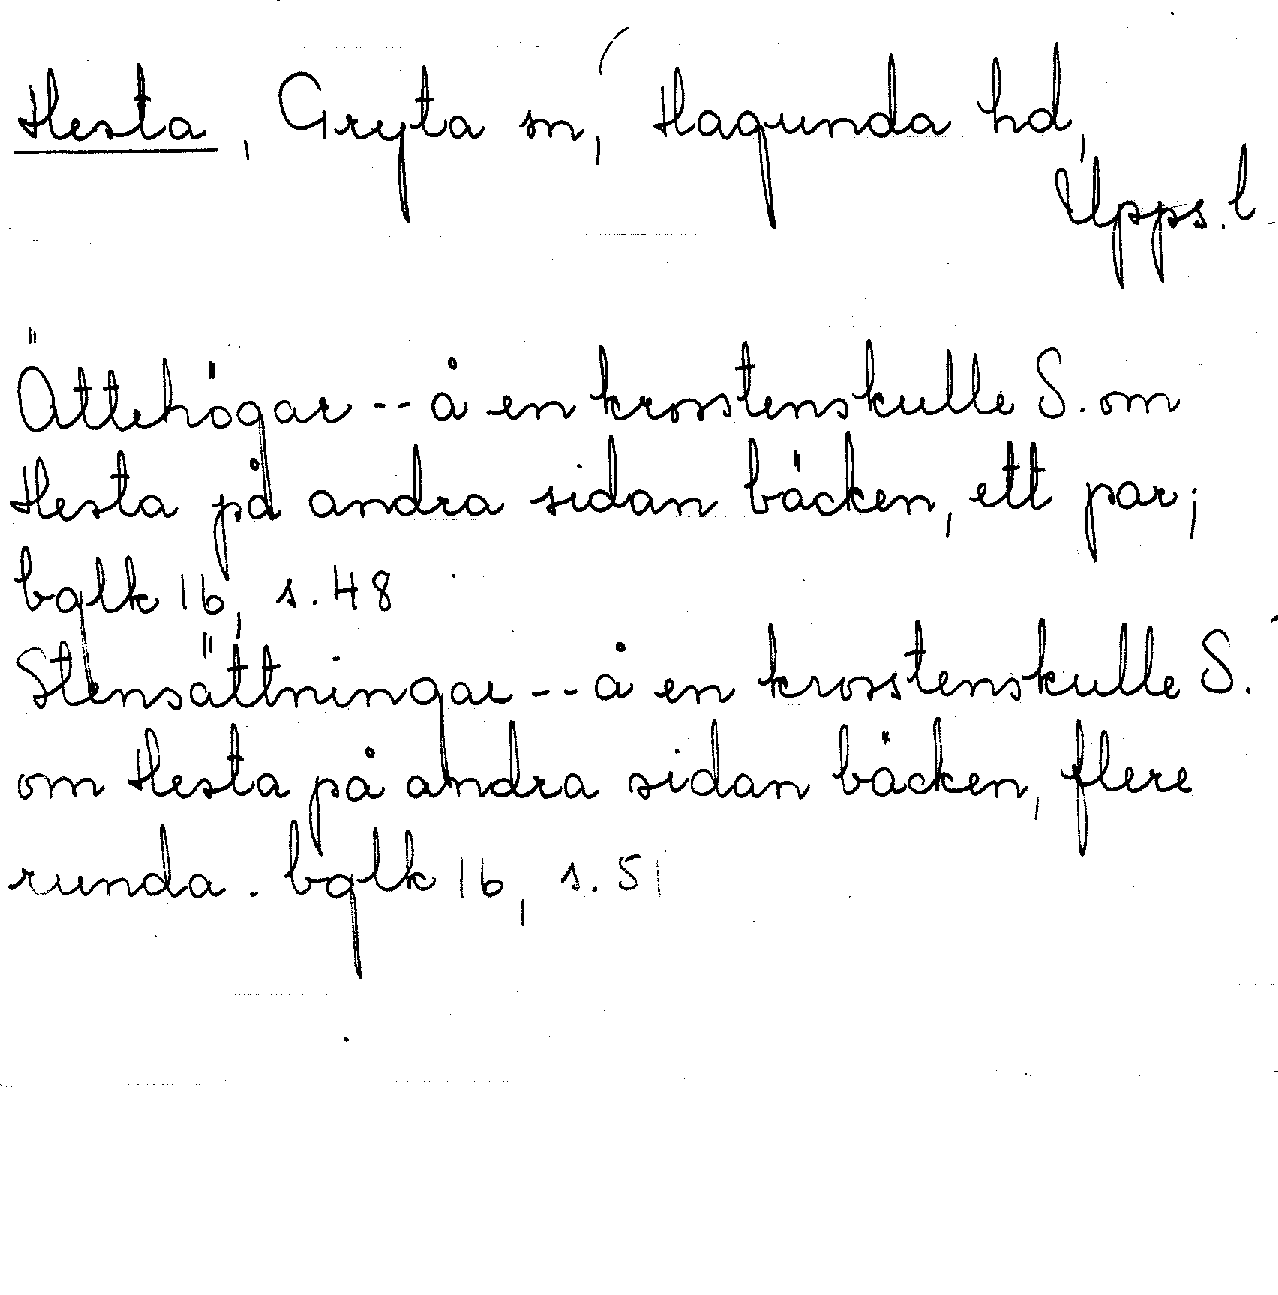 Hesta, Gryta sn, Hagunda hd,
Upps. l
Ättehögar -- å en krosstenskulle S. om
Hesta på andra sidan bäcken, ett par;
bglk 16, s. 48
Stensättningar -- å en krosstenskulle S.
om Hesta på andra sidan bäcken, flere
runda. bglk 16, s. 51